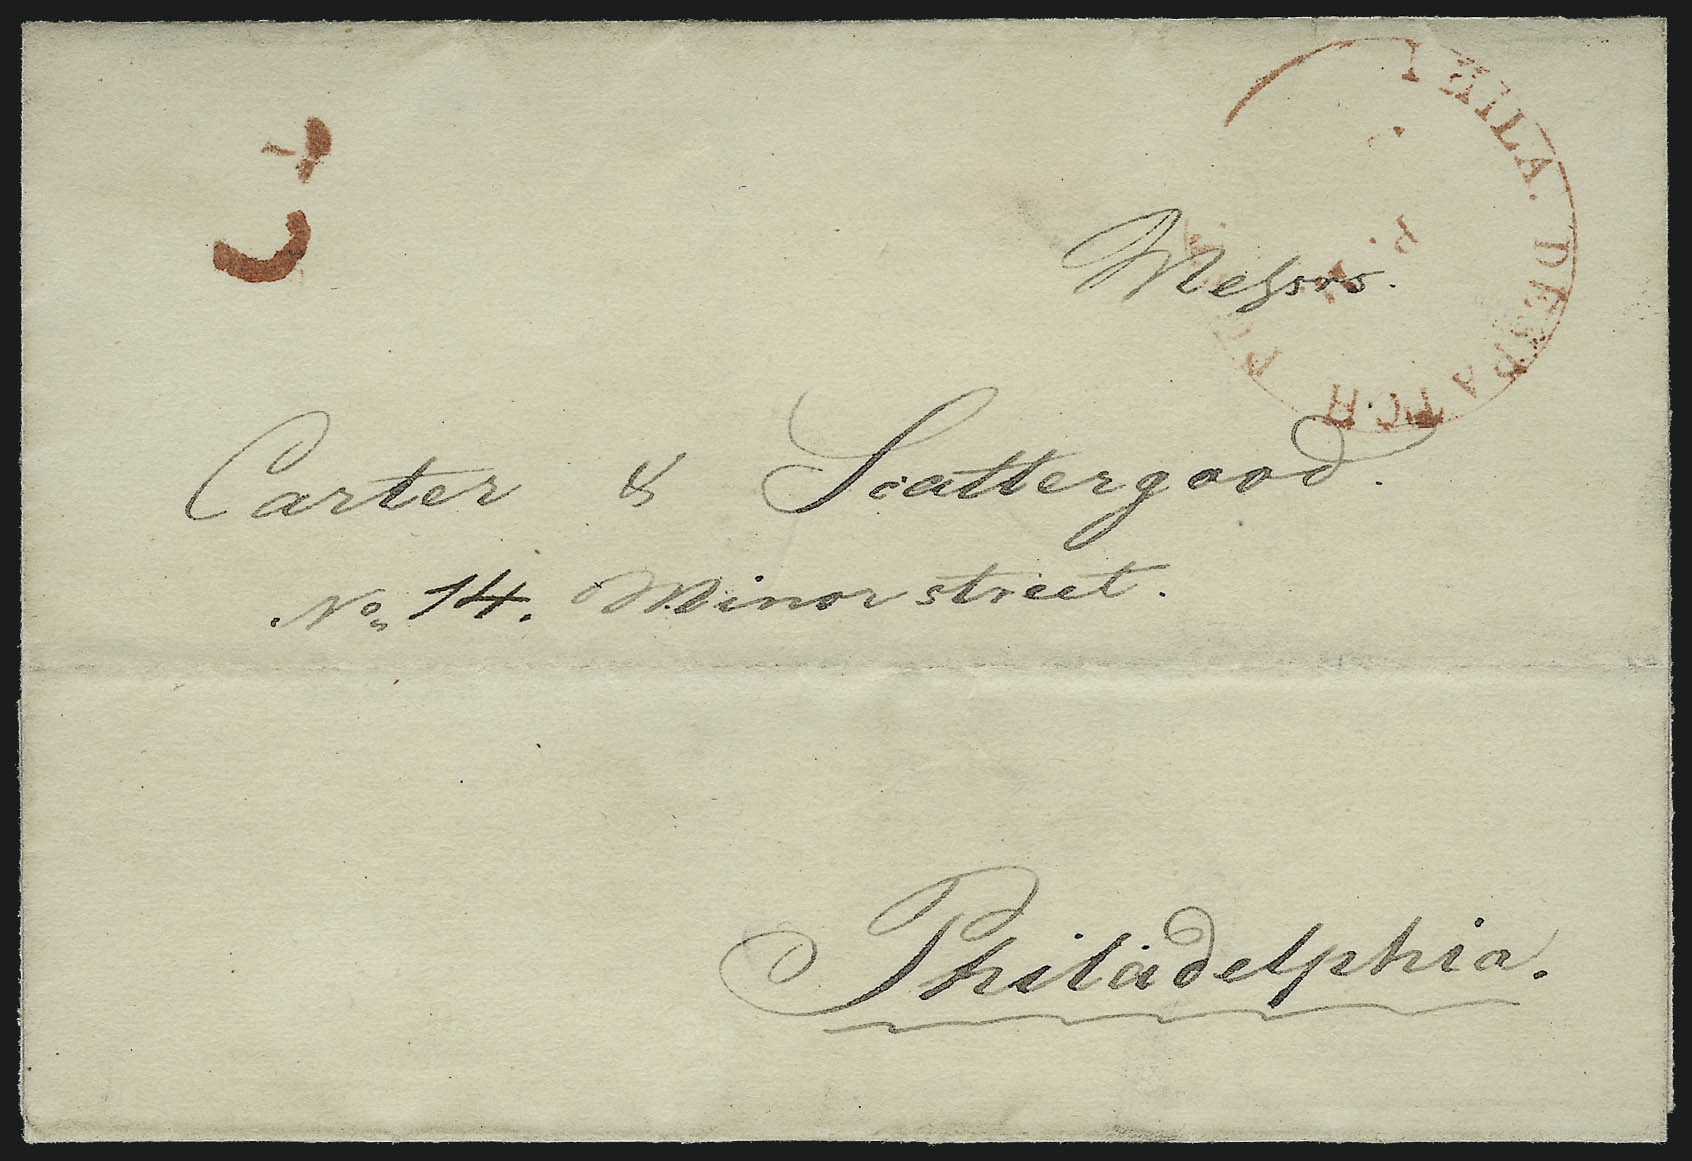 PHILA. DESPATCH POST
P.
Messrs.
Carter & Scattergood.
No. 14. Minor street.
Philadelphia.